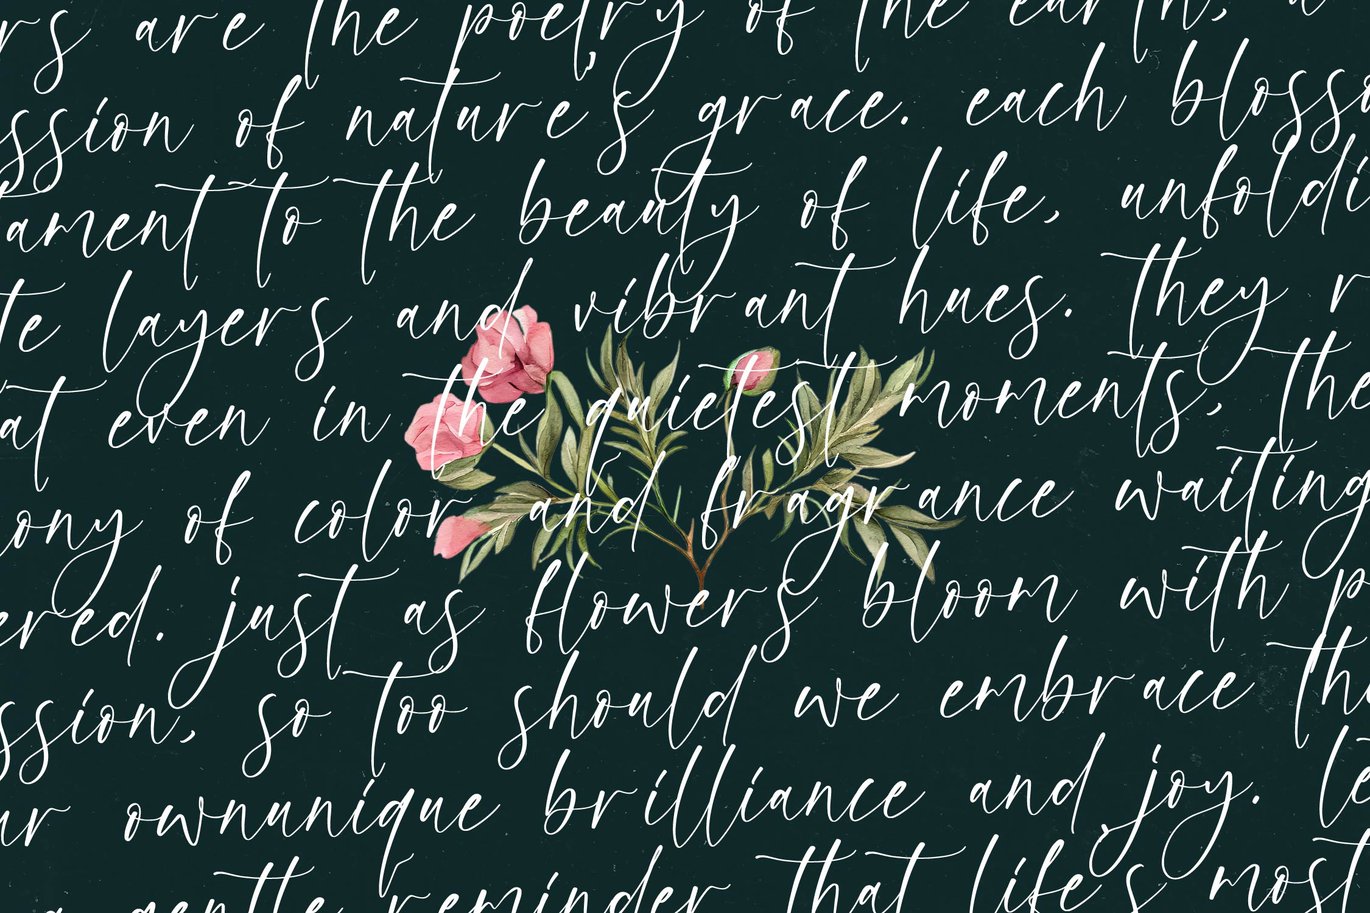 rs are the poetry of the earth, a
ssion of nature's grace. each blosso
tament to the beauty of life, unfoldi
te layers and vibrant hues. they r
at even in the quietest moments, the
ony of color and fragrance waiting
ered. just as flowers bloom with p
ssion, so too should we embrace th
ur ownunique brilliance and joy. le
a gentle reminder that life's most